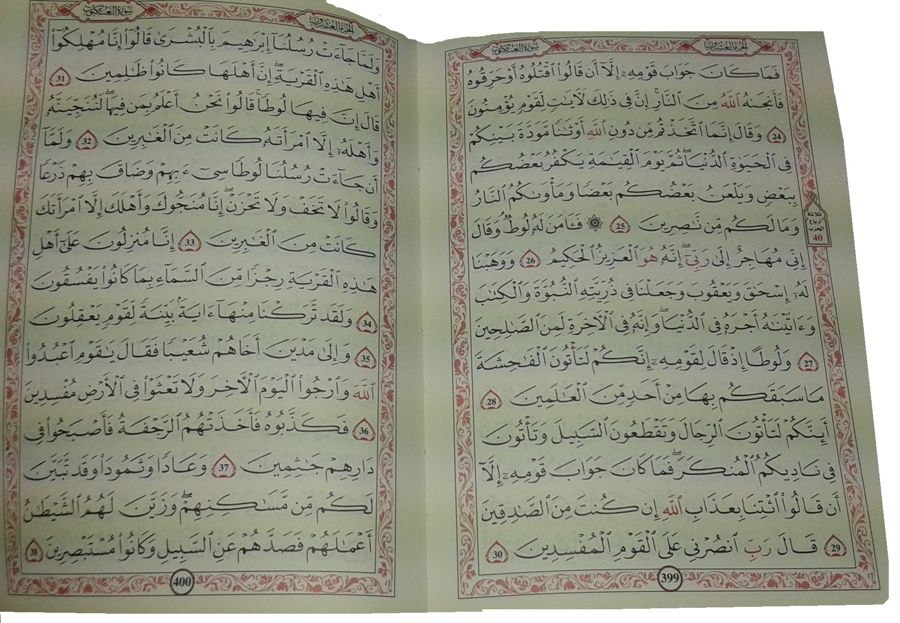 الجزء العشرون
سورة العنكبوت
فَمَا كَانَ جَوَابَ قَوْمِهِۦٓ إِلَّآ أَن قَالُوا۟ ٱقْتُلُوهُ أَوْ حَرِّقُوهُ
فَأَنجَىٰهُ ٱللَّهُ مِنَ ٱلنَّارِ ۚ إِنَّ فِى ذَٰلِكَ لَـَٔايَٰتٍ لِّقَوْمٍ يُؤْمِنُونَ
24 وَقَالَ إِنَّمَا ٱتَّخَذْتُم مِّن دُونِ ٱللَّهِ أَوْثَٰنًا مَّوَدَّةَ بَيْنِكُمْ
فِى ٱلْحَيَوٰةِ ٱلدُّنْيَا ۖ ثُمَّ يَوْمَ ٱلْقِيَٰمَةِ يَكْفُرُ بَعْضُكُم
بِبَعْضٍ وَيَلْعَنُ بَعْضُكُم بَعْضًا وَمَأْوَىٰكُمُ ٱلنَّارُ
وَمَا لَكُم مِّن نَّٰصِرِينَ 25 ۞ فَـَٔامَنَ لَهُۥ لُوطٌ ۘ وَقَالَ
إِنِّى مُهَاجِرٌ إِلَىٰ رَبِّىٓ ۖ إِنَّهُۥ هُوَ ٱلْعَزِيزُ ٱلْحَكِيمُ 26 وَوَهَبْنَا
لَهُۥٓ إِسْحَٰقَ وَيَعْقُوبَ وَجَعَلْنَا فِى ذُرِّيَّتِهِ ٱلنُّبُوَّةَ وَٱلْكِتَٰبَ
وَءَاتَيْنَٰهُ أَجْرَهُۥ فِى ٱلدُّنْيَا ۖ وَإِنَّهُۥ فِى ٱلْـَٔاخِرَةِ لَمِنَ ٱلصَّٰلِحِينَ
27 وَلُوطًا إِذْ قَالَ لِقَوْمِهِۦٓ إِنَّكُمْ لَتَأْتُونَ ٱلْفَٰحِشَةَ
مَا سَبَقَكُم بِهَا مِنْ أَحَدٍ مِّنَ ٱلْعَٰلَمِينَ 28
أَئِنَّكُمْ لَتَأْتُونَ ٱلرِّجَالَ وَتَقْطَعُونَ ٱلسَّبِيلَ وَتَأْتُونَ
فِى نَادِيكُمُ ٱلْمُنكَرَ ۖ فَمَا كَانَ جَوَابَ قَوْمِهِۦٓ إِلَّآ
أَن قَالُوا۟ ٱئْتِنَا بِعَذَابِ ٱللَّهِ إِن كُنتَ مِنَ ٱلصَّٰدِقِينَ
29 قَالَ رَبِّ ٱنصُرْنِى عَلَى ٱلْقَوْمِ ٱلْمُفْسِدِينَ 30
ثلاثة
أرباع
الحزب
40
399
الجزء العشرون
سورة العنكبوت
وَلَمَّا جَآءَتْ رُسُلُنَآ إِبْرَٰهِيمَ بِٱلْبُشْرَىٰ قَالُوٓا۟ إِنَّا مُهْلِكُوٓا۟
أَهْلِ هَٰذِهِ ٱلْقَرْيَةِ ۖ إِنَّ أَهْلَهَا كَانُوا۟ ظَٰلِمِينَ 31
قَالَ إِنَّ فِيهَا لُوطًا ۚ قَالُوا۟ نَحْنُ أَعْلَمُ بِمَن فِيهَا ۖ لَنُنَجِّيَنَّهُۥ
وَأَهْلَهُۥٓ إِلَّا ٱمْرَأَتَهُۥ كَانَتْ مِنَ ٱلْغَٰبِرِينَ 32 وَلَمَّآ
أَن جَآءَتْ رُسُلُنَا لُوطًا سِىٓءَ بِهِمْ وَضَاقَ بِهِمْ ذَرْعًا
وَقَالُوا۟ لَا تَخَفْ وَلَا تَحْزَنْ ۖ إِنَّا مُنَجُّوكَ وَأَهْلَكَ إِلَّا ٱمْرَأَتَكَ
كَانَتْ مِنَ ٱلْغَٰبِرِينَ 33 إِنَّا مُنزِلُونَ عَلَىٰٓ أَهْلِ
هَٰذِهِ ٱلْقَرْيَةِ رِجْزًا مِّنَ ٱلسَّمَآءِ بِمَا كَانُوا۟ يَفْسُقُونَ
34 وَلَقَد تَّرَكْنَا مِنْهَآ ءَايَةًۢ بَيِّنَةً لِّقَوْمٍ يَعْقِلُونَ
35 وَإِلَىٰ مَدْيَنَ أَخَاهُمْ شُعَيْبًا فَقَالَ يَٰقَوْمِ ٱعْبُدُوا۟
ٱللَّهَ وَٱرْجُوا۟ ٱلْيَوْمَ ٱلْـَٔاخِرَ وَلَا تَعْثَوْا۟ فِى ٱلْأَرْضِ مُفْسِدِينَ
36 فَكَذَّبُوهُ فَأَخَذَتْهُمُ ٱلرَّجْفَةُ فَأَصْبَحُوا۟ فِى
دَارِهِمْ جَٰثِمِينَ 37 وَعَادًا وَثَمُودَا۟ وَقَد تَّبَيَّنَ
لَكُم مِّن مَّسَٰكِنِهِمْ ۖ وَزَيَّنَ لَهُمُ ٱلشَّيْطَٰنُ
أَعْمَٰلَهُمْ فَصَدَّهُمْ عَنِ ٱلسَّبِيلِ وَكَانُوا۟ مُسْتَبْصِرِينَ 38
400